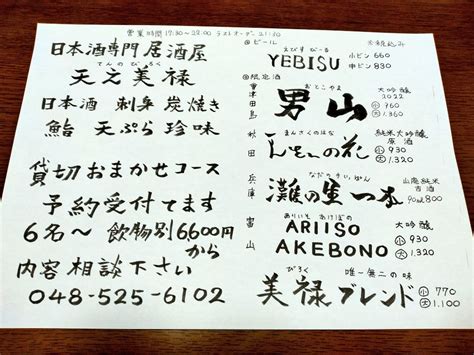 営業時間 17:30〜22:00 ラストオーダー 21:30
日本酒専門居酒屋
てんのびろく
天之美禄
日本酒 刺身 炭焼き
鮨 天ぷら 珍味
貸切おまかせコース
予約受付てます
6名〜 飲物別6,600円から
内容相談下さい
048-525-6102
ビール
※税込み
えびすびーる
YEBISU
小ビン 660
中ビン 830
限定酒
會津田島
おとこやま
男山
大吟醸
2022
小 760
大 1.360
秋田
まんさくのはな
まんさくの花
純米大吟醸
原酒
小 930
大 1.320
兵庫
灘の生一本
山廃純米
吉酒
90ml 800
富山
ありいそ あけぼの
ARIISO
AKEBONO
大吟醸
小 930
大 1.350
びろく
美禄ブレンド
唯一無二の味
小 770
大 1.100